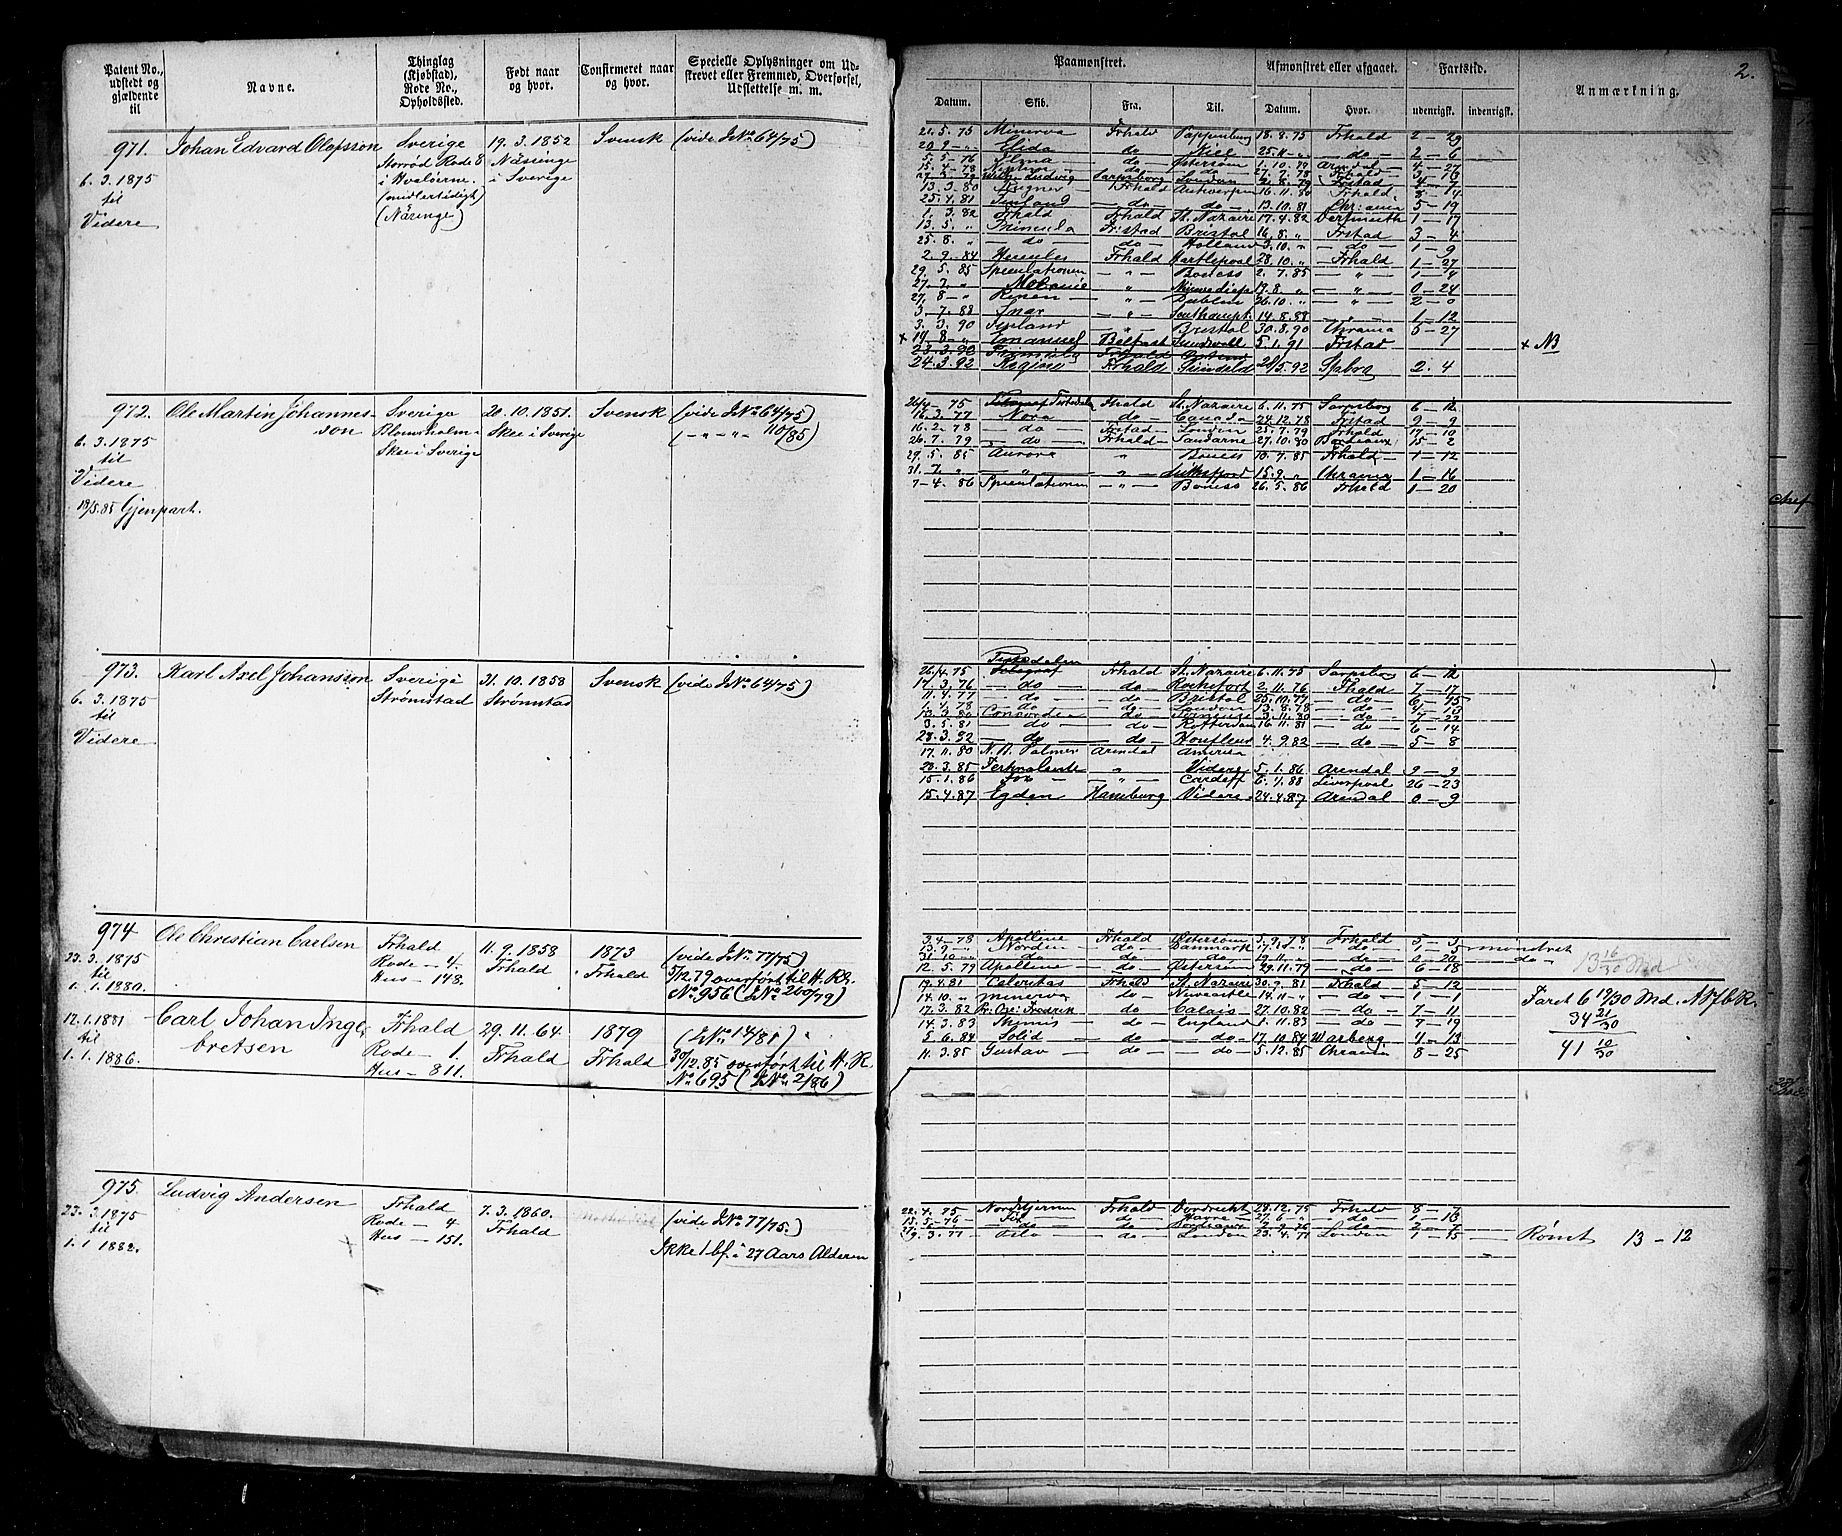 Patent No., udstedt og gjældende til
Navne.
Thinglag (Kjøbstad), Rode No., Opholdssted.
Født naar og hvor.
Confirmeret naar og hvor.
Specielle Oplysninger om Udskrevet eller Fremmed, Overførsel, Udslettelse m. m.
971. Johan Edvard Olafsson Sverige 19. 3. 1852 Svensk (vide J.No 64/75)
Storrød Rode 8 Näsinge
6. 3. 1875 i Hvaløerne. i Sverige
til (midlertidigt)
Videre (Näringe)
972. Ole Martin Johannes- Sverige 20. 10. 1851. Svensk (vide J.No 64/75)
son Blomsholm Skee i Sverige (-"-"- 110/85)
6. 3. 1875 Skee i Sverige
til
Videre
18/5.85 Gjenpart.
973. Karl Axel Johansson Sverige 31. 10. 1858 Svensk (vide J.No 64/75)
6. 3. 1875 Strømstad Strømstad
til
Videre
974. Ole Christian Carlsen Frhald 11. 9. 1858 1873 (vide J.No 77/75)
23. 3. 1875 Rode - 4. Frhald Frhald 3/12.79 overført til H. R.
til Hus - 148. No 956 (J.No 260/79)
1. 1. 1880.
12. 1. 1881 Carl Johan Inge- Frhald 29. 11. 64. 1879 (J.No 14/81)
til bretsen Rode - 1. Frhald Frhald 30/12.85 overført til H. R.
1. 1. 1886. Hus - 811. No 695 (J.No 2/86)
975. Ludvig Andersen Frhald 7. 3. 1860. (vide J.No 77/75)
23. 3. 1875 Rode - 4 Frhald
til Hus - 151. Ikke 1 bf. i 27 Aars Alderen
1. 1. 1882.
2.
Paamønstret.
Afmønstret eller afgaaet.
Fartstid.
Anmærkning.
Datum. Skib. Fra. Til. Datum. Hvor. udenrigsk. indenrigsk.
21. 5. 75 Minerva Frhald Pappenburg 18. 8. 75 Frhald 2 - 29
20 9 - " Elida do Kiel 25. 11 - " do 2 - 6
5. 5. 76 do Østersøen 1. 10. 76 Arendal 4 - 27
Ludvig Sarpsborg London Frstad 4 - 7
13. 3. 80 Frhald Antwerpen 16. 11. 80 Frhald 8 - 4
25. 4. 81 Finland do do 13. 10. 81 Chr:ania 5 - 19
1. 3. 82 Frhald Frhald St. Nazaire 17. 4. 82 Dartmouth 1 - 17
13. 5. " Frstad Bristol 16. 8. " Frstad 3 - 4
25. 8. " do do Holland 3. 10. " do 1 - 9
2. 9. 84 Hercules Frhald Hartlepool 28. 10. " Frhald 1 - 27
29. 5. 85 Speculationen " Boness 2. 7. 85 " 1 - 4
27. 7. " " Nieuwediep 19. 8 " " 0 - 24
27. 8 - " " Dublin 26. 10. " " 2 - 0
3. 7. 88 Snar " Southampt. 14. 8. 88 " 1 - 12
3. 3. 90 Finland " Bristol 30. 8. 90 Chrania 5 - 27
x 19. 8 - " Emanuel Belfast Sundsvall 5. 1. 91 Frstad x NB
23. 3. 92 Frhald
24. 3. 92 Regina Frhald 21/5. 92 Spbrg 2. 4
26/4 - 75 Tistedalen Frhald St. Nazaire 6. 11. 75 Sarpsborg 6 - 12
16. 3. 77 Nora do Canada 24. 12. 78 Frstad 9 - 9
16. 2. 78 do Frstad London 25. 7. 79 Frhald 17 - 10
26. 7. 79 do Frhald 27. 10. 80 Bordeaux 15 - 2
29. 5. 85 Aurora " Boness 10. 7. 85 Frhald 1 - 12
31. 7. " " " 15. 9. " Chrania 1 - 16
7 - 4. 86 Speculationen " Boness 26. 5. 86 Frhald 1 - 20
Tistedalen
26/4. 75 Telegraf Frhald St. Nazaire 6. 11. 75 Sarpsborg 6 - 12
17. 3. 76 do do Rochefort 2. 11. 76 Fhald 7 - 17
11. 4. 77 do do Bristol 25. 10. 77 do 6 - 15
1. 4. 78 do do London 13. 8. 78 do 4 - 13
Concordia do 3. 11. 80 do 7 - 22
3. 5. 81 do do Rotterdam 16. 11. 81 do 6 - 14
28. 3. 82 do do Honfleur 4. 9. 82 do 5 - 8
17. 11. 80 N. H. Palmer Arendal America
23. 3. 85 " Videre 5. 1. 86 Arendal 9 - 9
15. 1. 86 " Cardeff 6. 4. 88 Liverpool 26 - 23
15. 4. 87 Egden Hamburg Videre 24. 4. 87 Arendal 0 - 9
3. 4 - 78 Apolline Frhald Østersøen 5. 9. 78 Frhald 5 - 3 mønstret
13. 9 - " Norden do Danmark do do
31. 10 - " do do do 19. 11 - " do 0 - 20
12. 5. 79 Apolline do Østersøen 29. 11. 79 do 6 - 18 13 16/30 Md
19. 4. 81 Celeritas Frhald St. Nazaire 30. 9. 81 Frhald 5 - 12
14. 10. " Minerva do Newcastle 14. 11 - " do 1 - 1 Faret 6 19/30 Md.
17. 3. 82 Fredrik do Calais 27. 10. 82 do 7 - 11 34 21/30
14. 3. 83 do England 1. 11. 83 do 7 - 19
5. 6. 84 Solid do do 17. 10. 84 Warberg 4 - 13 41 10/30
11. 3. 85 Gustav do do 5. 12. 85 Chrania 8 - 25
22. 4. 75 Nordstjernen Frhald Dordrecht 28. 12. 75 Frhald 8 - 7
15. 5. - 76 do Havre 27. 6 " do 1 - 13
do do Bordeaux do 2 - 7
9. 3. 77 Oslo do London 23. 4. 77 London 1 - 15 Rømt 13 - 12